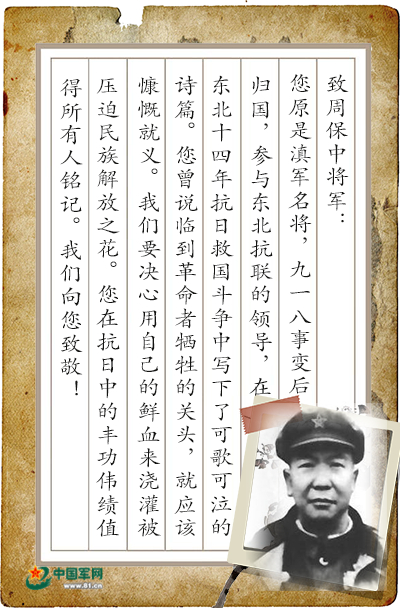 致周保中将军：
您原是滇军名将，九一八事变后
归国，参与东北抗联的领导，在
东北十四年抗日救国斗争中写下了可歌可泣的
诗篇。您曾说临到革命者牺牲的关头，就应该
慷慨就义。我们要决心用自己的鲜血来浇灌被
压迫民族解放之花。您在抗日中的丰功伟绩值
得所有人铭记。我们向您致敬！
中国军网
www.81.cn